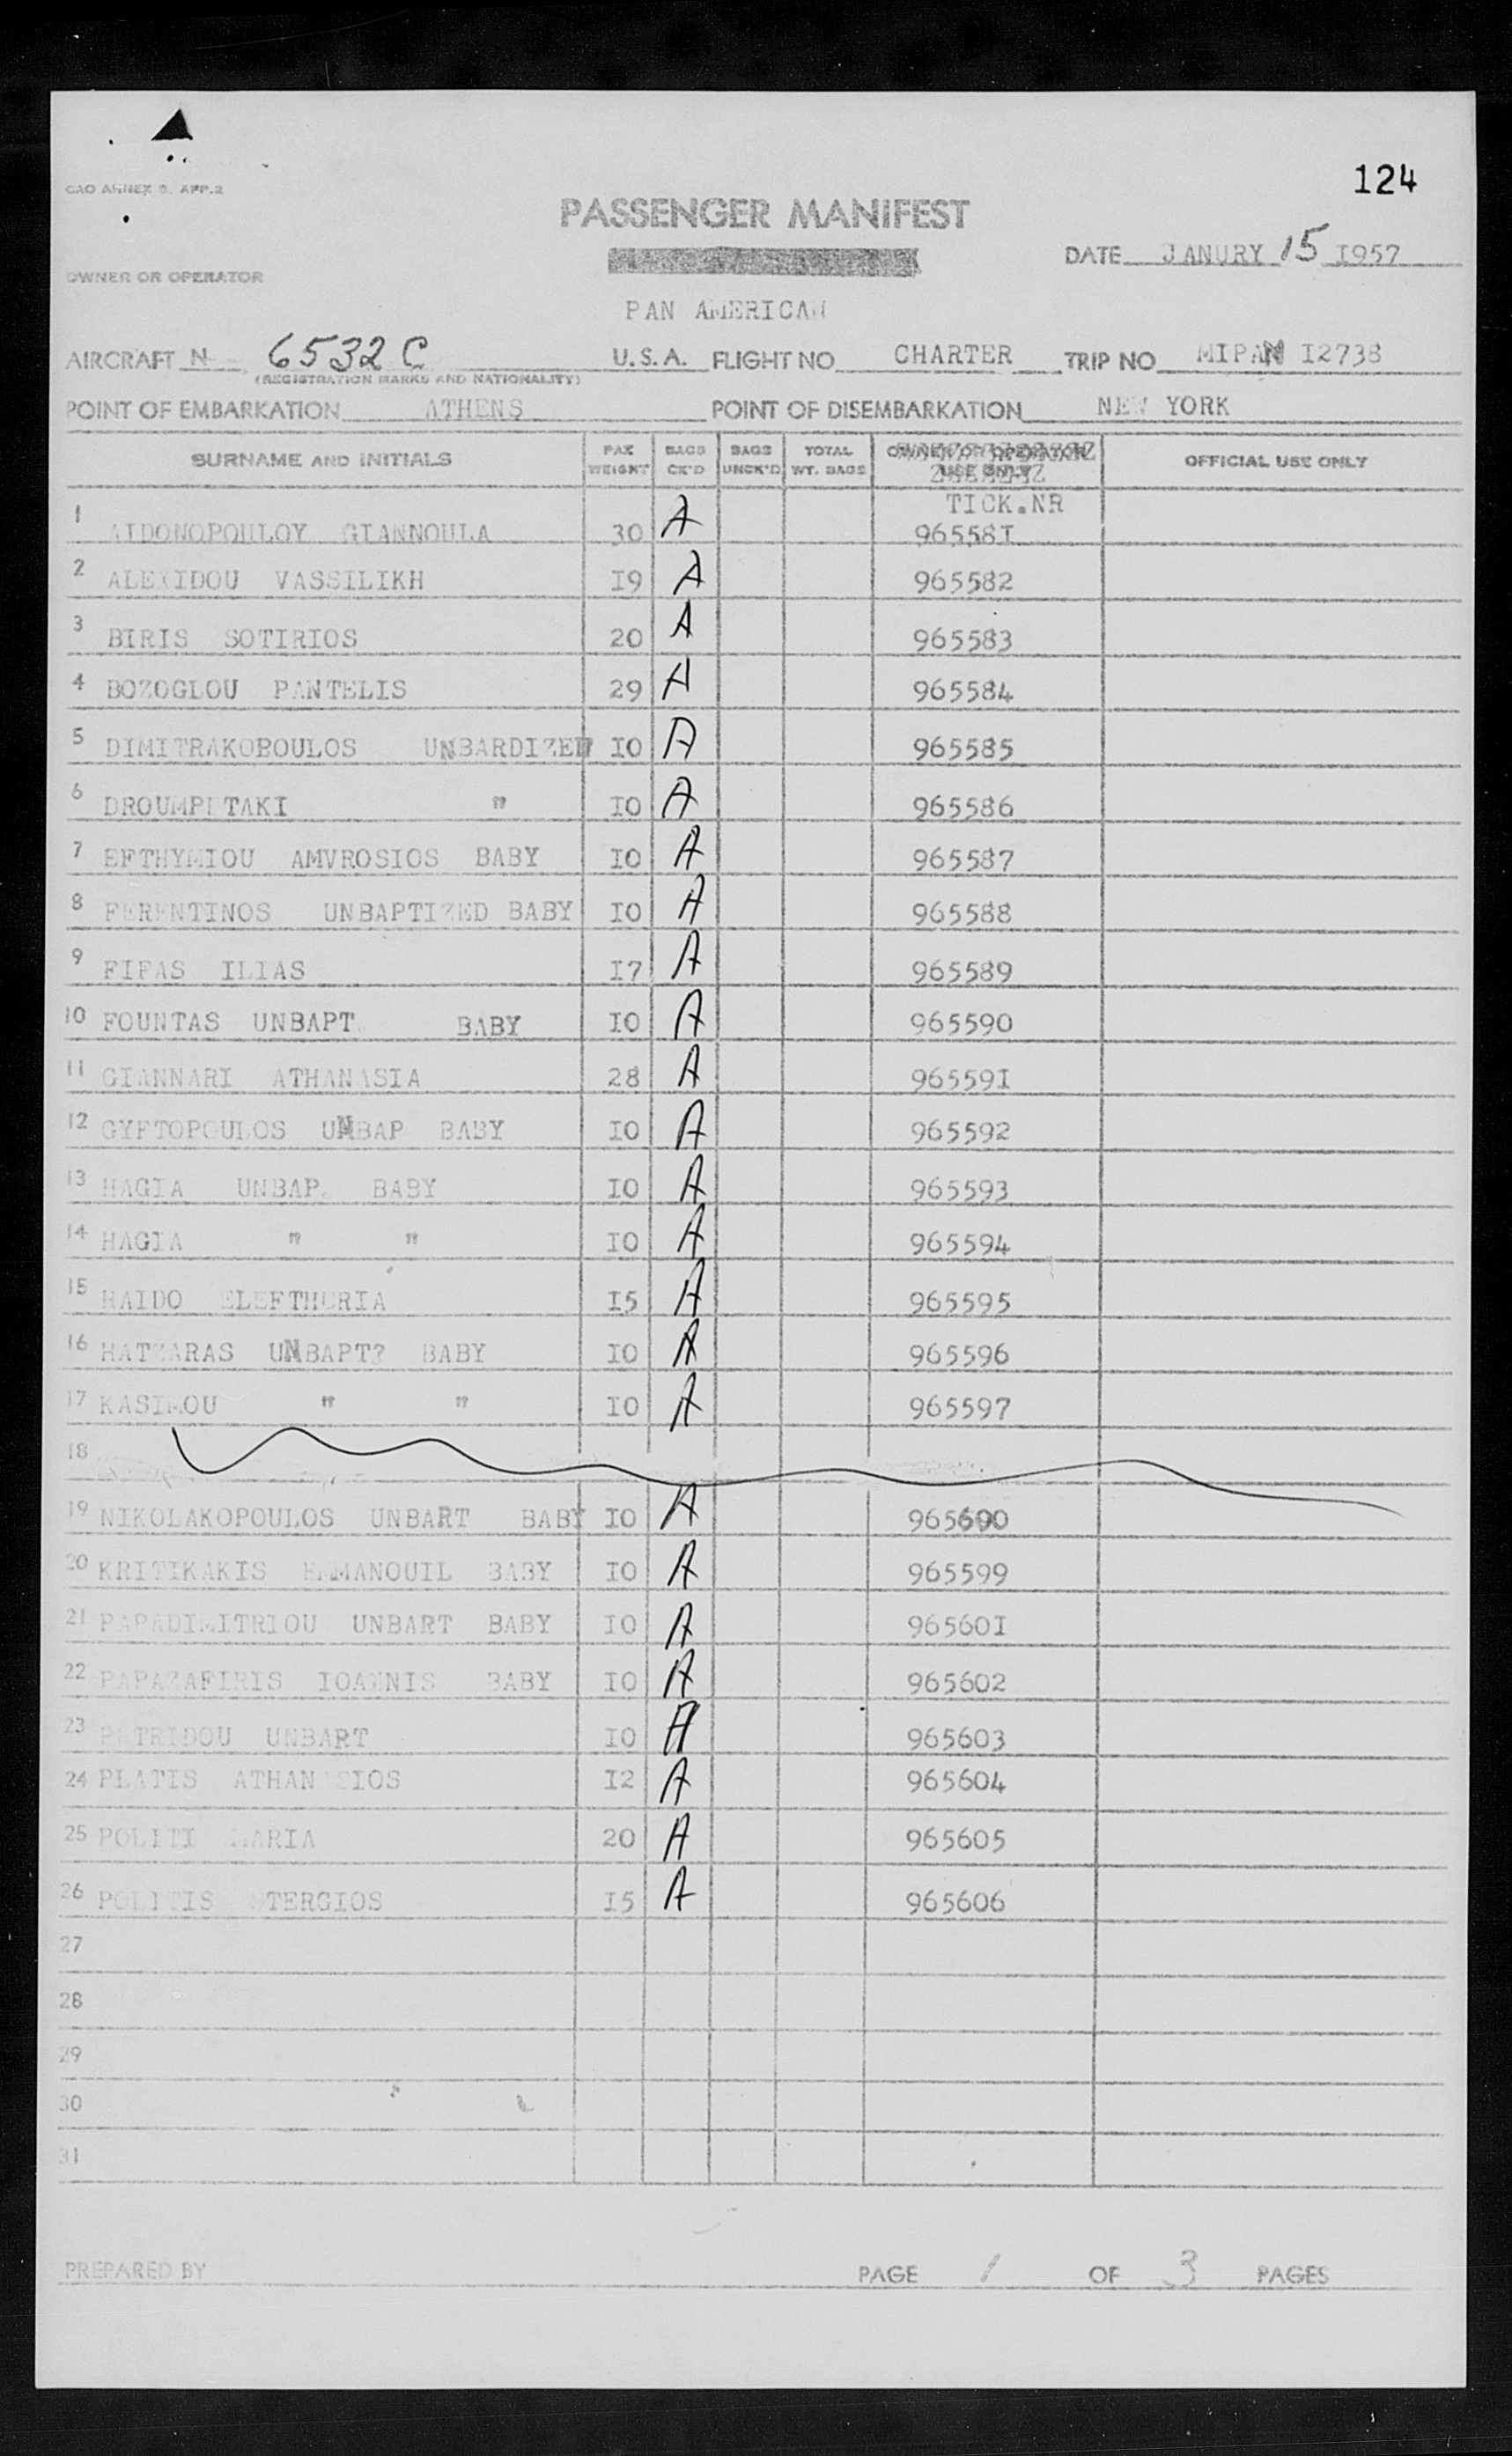 124
CAO ANNEX 9. APP.2
PASSENGER MANIFEST
DATE JANURY 15 I957
OWNER OR OPERATOR
PAN AMERICAN
AIRCRAFT N 6532 C U.S.A. FLIGHT NO CHARTER TRIP NO MIPAN I2738
(REGISTRATION MARKS AND NATIONALITY)
POINT OF EMBARKATION ATHENS POINT OF DISEMBARKATION NEW YORK
SURNAME AND INITIALS PAX WEIGHT BAGS CK'D BAGS UNCK'D TOTAL WT. BAGS OWNER OR OPERATOR USE ONLY OFFICIAL USE ONLY
TICK.NR
1 AIDONOPOULOY GIANNOULA 30 A 96558I
2 ALEXIDOU VASSILIKH I9 A 965582
3 BIRIS SOTIRIOS 20 A 965583
4 BOZOGLOU PANTELIS 29 A 965584
5 DIMITRAKOPOULOS UNBARDIZED IO A 965585
6 DROUMPETAKI " IO A 965586
7 EFTHYMIOU AMVROSIOS BABY IO A 965587
8 FERENTINOS UNBAPTIZED BABY IO A 965588
9 FIFAS ILIAS I7 A 965589
10 FOUNTAS UNBAPT. BABY IO A 965590
11 GIANNARI ATHANASIA 28 A 96559I
12 GYFTOPOULOS UNBAP BABY IO A 965592
13 HAGIA UNBAP. BABY IO A 965593
14 HAGIA " " IO A 965594
15 HAIDO ELEFTHERIA I5 A 965595
16 HATZARAS UNBAPT? BABY IO A 965596
17 KASIMOU " " IO A 965597
18
19 NIKOLAKOPOULOS UNBART BABY IO A 965600
20 KRITIKAKIS EMMANOUIL BABY IO A 965599
21 PAPADIMITRIOU UNBART BABY IO A 96560I
22 PAPAZAFIRIS IOANNIS BABY IO A 965602
23 PETRIDOU UNBART IO A 965603
24 PLATIS ATHANASIOS I2 A 965604
25 POLITI MARIA 20 A 965605
26 POLITIS STERGIOS I5 A 965606
27
28
29
30
31
PREPARED BY PAGE 1 OF 3 PAGES